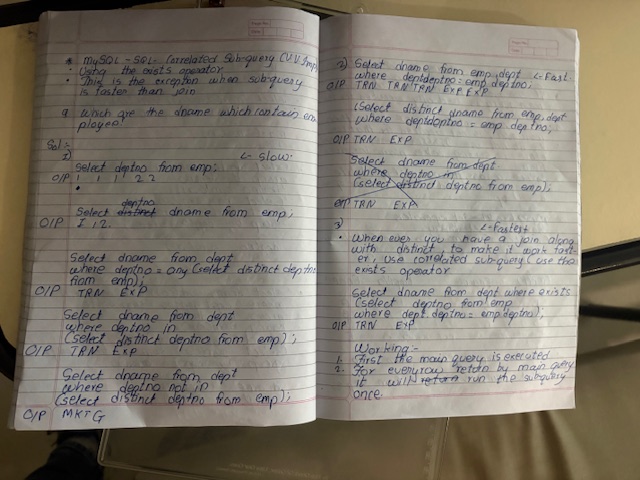 * MySQL - SQL - Correlated Sub-query (V.V.Imp)
- Using the exists operator
• This is the exception when sub-query
is faster than join
Q Which are the dname which contain em
ployee?
Sol:-
1) ← Slow.
Select deptno from emp;
O/P 1 1 1 2 2
deptno
Select distinct dname from emp;
O/P 1 2.
Select dname from dept
where deptno = any (select distinct deptno
from emp);
O/P TRN EXP
Select dname from dept
where deptno in
(select distinct deptno from emp);
O/P TRN EXP
Select dname from dept
where deptno not in
(select distinct deptno from emp);
O/P MKTG
2) Select dname from emp, dept ← Fast
where dept.deptno = emp.deptno;
O/P TRN TRN TRN EXP EXP
(Select distinct dname from emp, dept
where dept.deptno = emp.deptno;
O/P TRN EXP
Select dname from dept
where deptno in
(select distinct deptno from emp);
O/P TRN EXP
3) ← Fastest
• When ever you have a join along
with distinct, to make it work fast
er, use correlated sub-query (use the
exists operator
Select dname from dept where exists
(select deptno from emp
where dept.deptno = emp.deptno);
O/P TRN EXP
Working:-
1. First the main query is executed
2. For every row retdn by main query
it will return run the subquery
once.